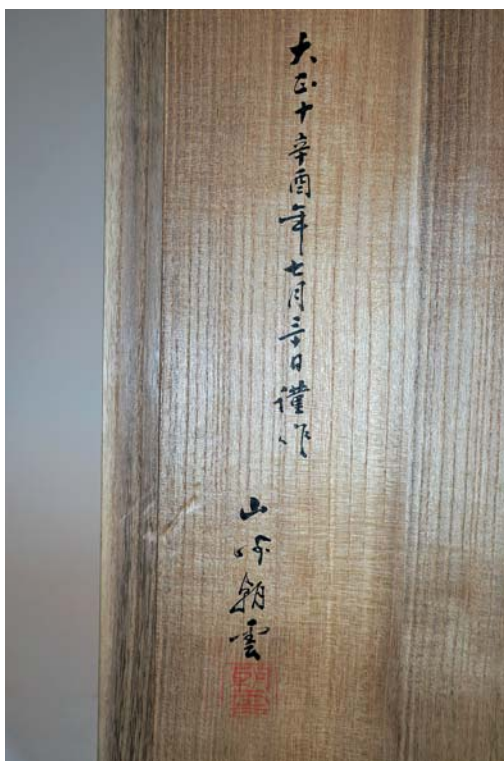 大正十辛酉年七月三十日謹作
山崎朝雲